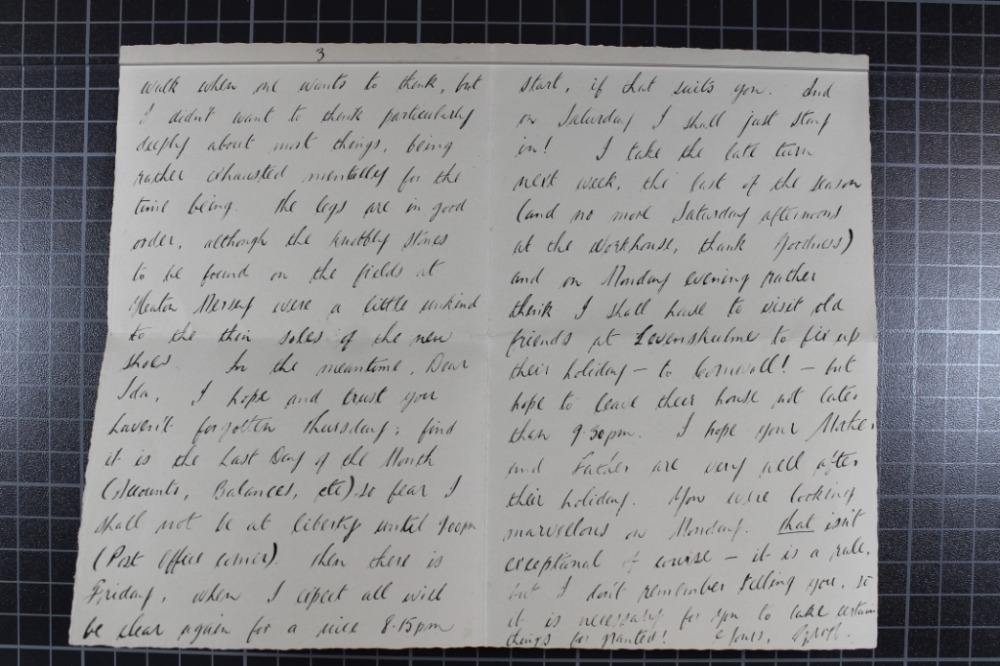 3
walk when one wants to think, but
I didn't want to think particularly
deeply about most things, being
rather exhausted mentally for the
time being. The legs are in good
order, although the knobbly stones
to be found on the fields at
Heaton Mersey were a little unkind
to the thin soles of the new
shoes. In the meantime, Dear
Ida, I hope and trust you
haven't forgotten Thursday; find
it is the Last Day of the Month
(Accounts, Balances, etc) so fear I
shall not be at liberty until 9.0pm
(Post Office corner). Then there is
Friday, when I expect all will
be clear again for a nice 8.15pm
start, if that suits you. And
on Saturday I shall just stay
in! I take the late turn
next week, the last of the season
(and no more Saturday afternoons
at the Workhouse, thank goodness)
and on Monday evening rather
think I shall have to visit old
friends at Levenshulme to fix up
their holiday – to Cornwall! – but
hope to leave their house not later
than 9.30pm. I hope your Mother
and Father are very well after
their holiday. You were looking
marvellous on Monday. That isn't
exceptional of course – it is a rule,
but I don't remember telling you, so
it is necessary for you to take certain
things for granted! Yours,